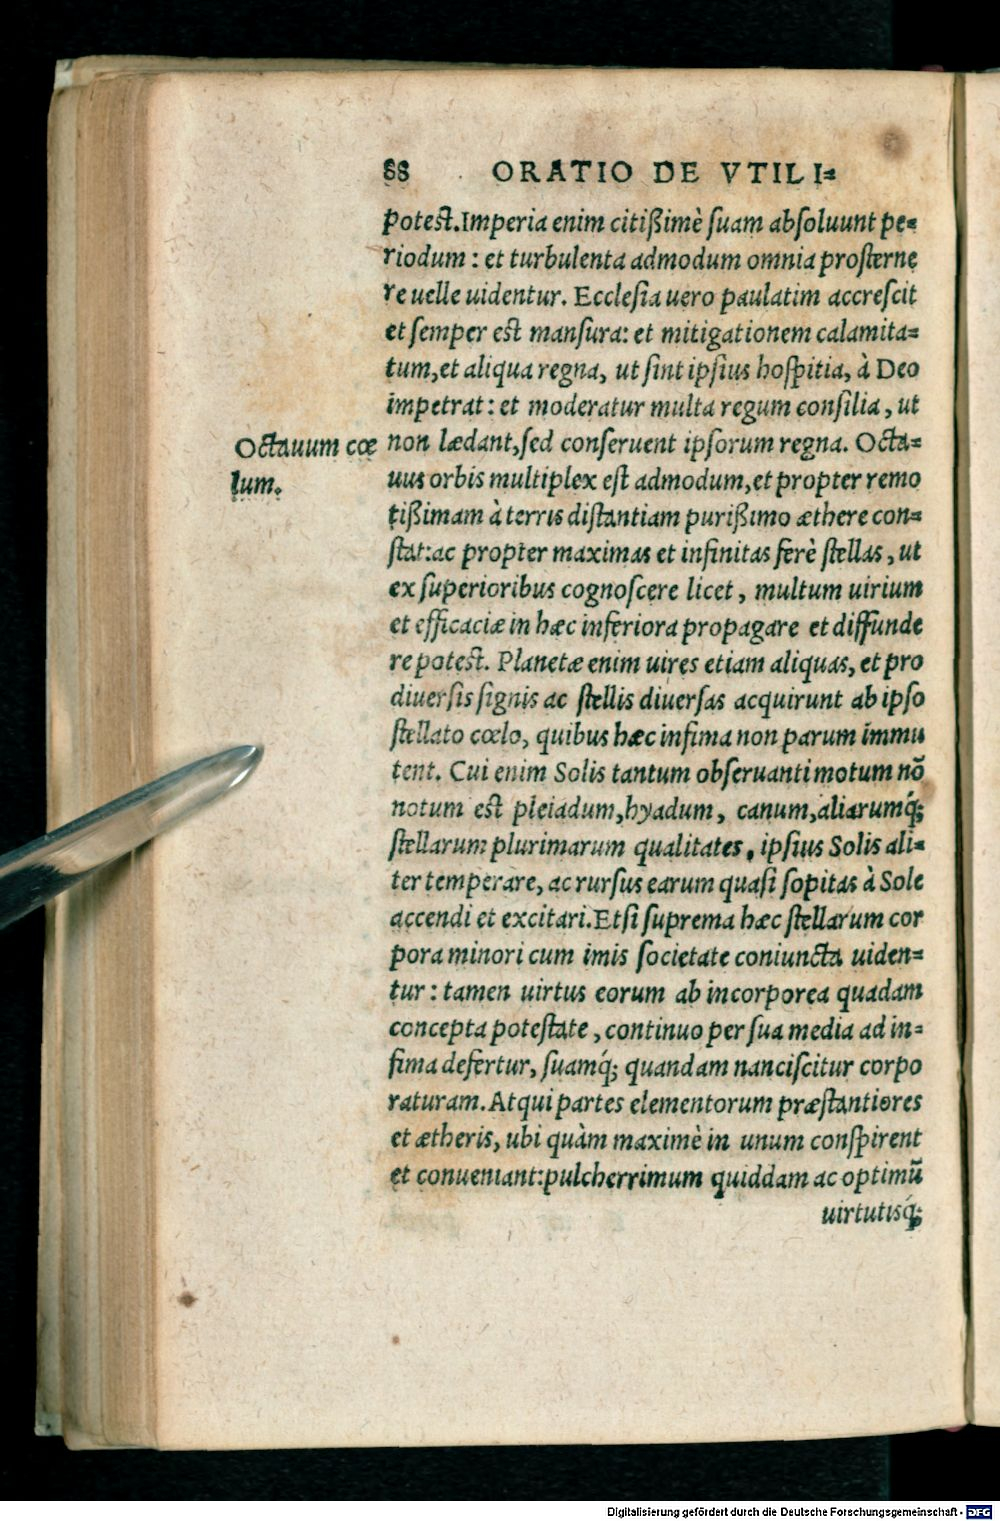 88 ORATIO DE VTILI=
potest. Imperia enim citißimè suam absoluunt pe=
riodum: et turbulenta admodum omnia prosterne
re uelle uidentur. Ecclesia uero paulatim accrescit
et semper est mansura: et mitigationem calamita=
tum, et aliqua regna, ut sint ipsius hospitia, à Deo
impetrat: et moderatur multa regum consilia, ut
non lædant, sed conseruent ipsorum regna. Octa=
Octauum cœ
lum.
uus orbis multiplex est admodum, et propter remo
tißimam à terris distantiam purißimo æthere con=
stat: ac propter maximas et infinitas ferè stellas, ut
ex superioribus cognoscere licet, multum uirium
et efficaciæ in hæc inferiora propagare et diffunde
re potest. Planetæ enim uires etiam aliquas, et pro
diuersis signis ac stellis diuersas acquirunt ab ipso
stellato cœlo, quibus hæc infima non parum immu
tent. Cui enim Solis tantum obseruanti motum nō
notum est pleiadum, hyadum, canum, aliarumq́;
stellarum plurimarum qualitates, ipsius Solis ali=
ter temperare, ac rursus earum quasi sopitas à Sole
accendi et excitari. Etsi suprema hæc stellarum cor
pora minori cum imis societate coniuncta uiden=
tur: tamen uirtus eorum ab incorporea quadam
concepta potestate, continuo per sua media ad in=
fima defertur, suamq́; quandam nanciscitur corpo
raturam. Atqui partes elementorum præstantiores
et ætheris, ubi quàm maximè in unum conspirent
et conueniant: pulcherrimum quiddam ac optimū
uirtutisq́;
Digitalisierung gefördert durch die Deutsche Forschungsgemeinschaft - DFG